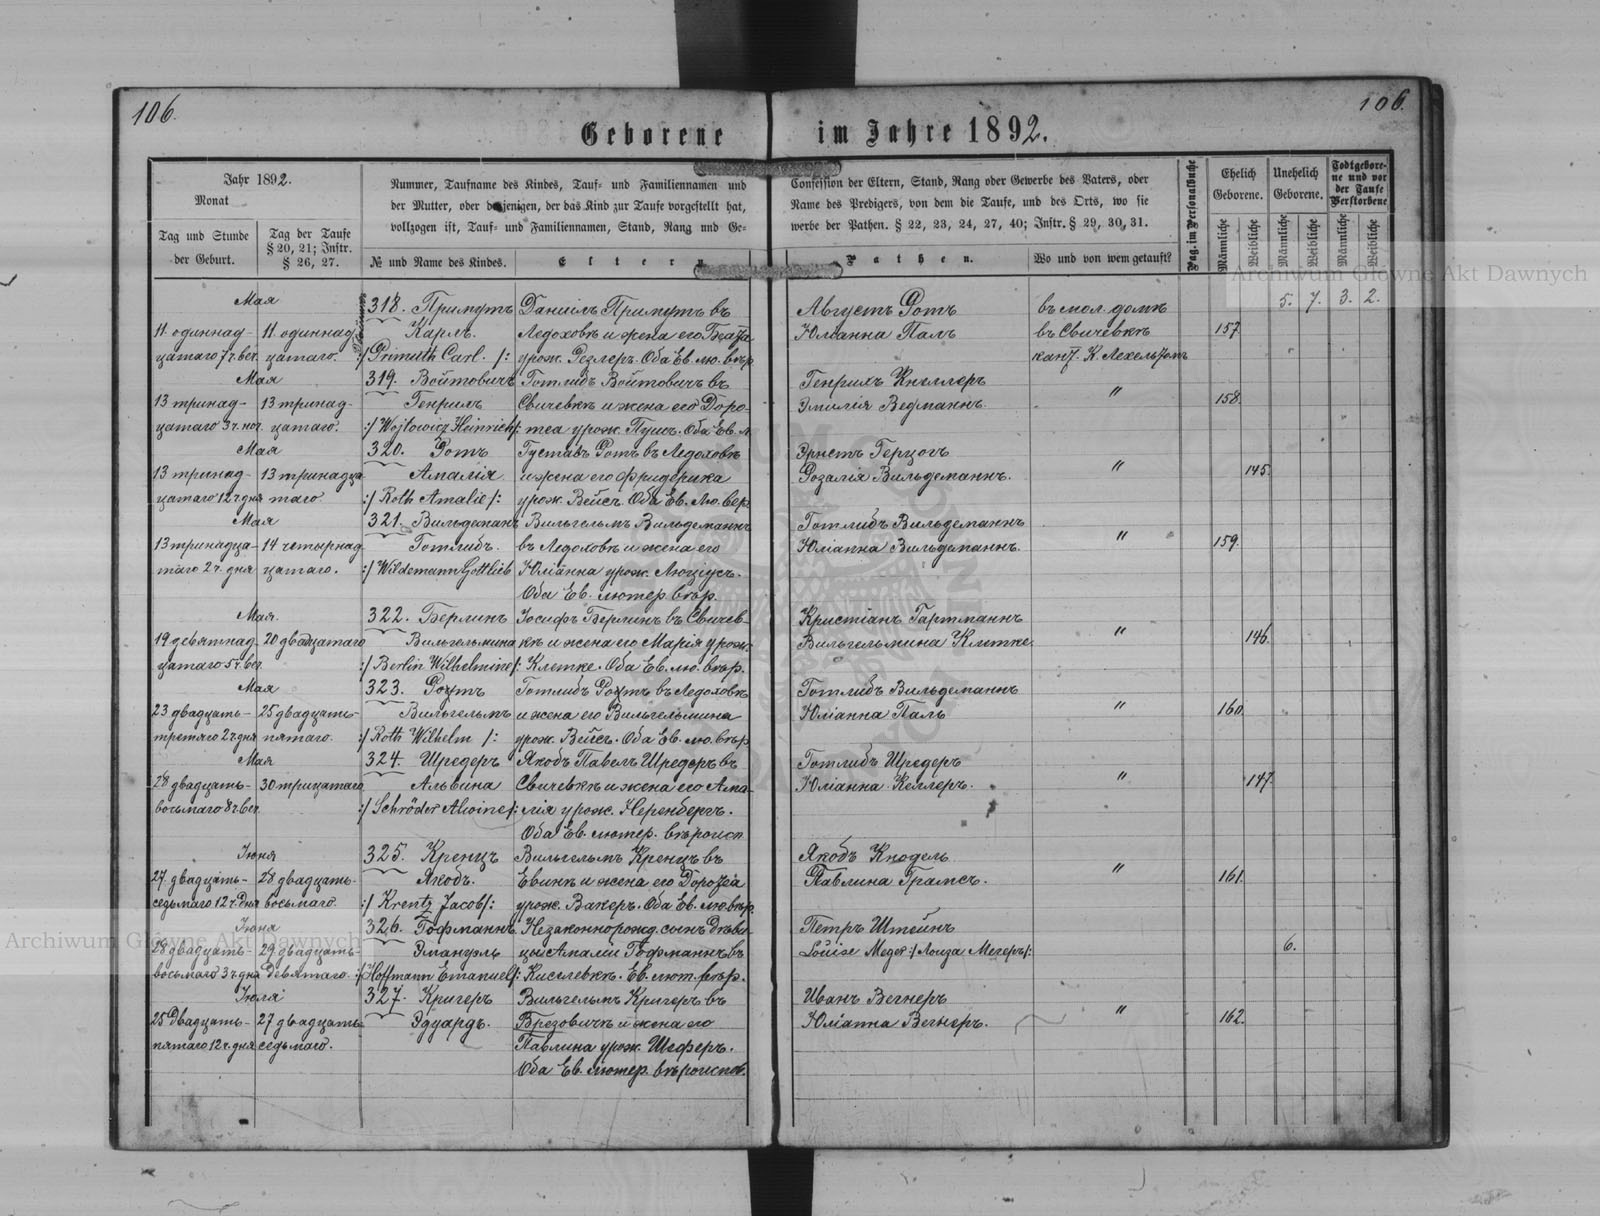 106.
106.
Geborene im Jahre 1892.
Jahr 1892.
Monat
Tag und Stunde
der Geburt.
Tag der Taufe
§ 20, 21; Instr.
§ 26, 27.
Nummer, Taufname des Kindes, Tauf- und Familiennamen und
der Mutter, oder derjenigen, der das Kind zur Taufe vorgestellt hat,
vollzogen ist, Tauf- und Familiennamen, Stand, Rang und Ge-
№ und Name des Kindes.
Eltern
Confession der Eltern, Stand, Rang oder Gewerbe des Vaters, oder
Name des Predigers, von dem die Taufe, und des Orts, wo sie
werbe der Pathen. § 22, 23, 24, 27, 40; Instr. § 29, 30, 31.
Pathen.
Wo und von wem getauft?
Pag. im Personalbuche
Ehelich
Geborene.
Unehelich
Geborene.
Todtgebore-
ne und vor
der Taufe
Verstorbene
Männliche
Weibliche
Männliche
Weibliche
Männliche
Weibliche
5. 7. 3. 2.
Мая
11. одиннад-
цатаго 7 ч. веч.
11. одиннад
цатаго.
318. Примутъ
Карлъ.
:/ Primuth Carl. /:
Данiилъ Примутъ въ
Ледоховкѣ и жена его
урож. Рсзлеръ. Оба Ев. лю. вѣр.
Августъ Ротъ
Юлiанна Палъ
въ мол. домѣ
въ Свичевкѣ
кант. К. Лехельтъ
157
Мая
13 тринад-
цатаго 3 ч. ноч.
13 тринад-
цатаго.
319. Войтовичъ
Генрихъ
:/ Wojtowicz Heinrich /:
Готлибъ Войтовичъ въ
Свичевкѣ и жена его Доро-
теа урож. Пушъ. Оба Ев. л.
Генрихъ Книллеръ
Эмилiя Ведманнъ.
"
158
Мая
13 тринад-
цатаго 12 ч дня
13 тринадца
таго
320. Ротъ
Амалiя
:/ Roth Amalie /:
Густавъ Ротъ въ Ледоховкѣ
и жена его Фридерика
урож. Вейсъ. Оба Ев. Лю. вѣр.
Эрнстъ Герцогъ
Розалiя Вильдеманнъ.
"
145.
Мая
13 тринадца-
таго 2 ч. дня
14 четырнад
цатаго.
321. Вильдеманъ
Готлибъ.
:/ Wildemann Gottlieb
Вильгельмъ Вильдеманнъ
въ Ледоховкѣ и жена его
Юлiанна урож. Люцiусъ.
Оба Ев. лютер. вѣр.
Готлибъ Вильдеманнъ
Юлiанна Вильдеманнъ.
"
159.
Мая.
19 девятнад
цатаго 5 ч. веч.
20 двадцатаго
322. Берлинъ
Вильгельмина
:/ Berlin Wilhelmine /:
Iосифъ Берлинъ въ Свичев-
кѣ и жена его Марiя урож.
Клетке. Оба Ев. лю. вѣр.
Кристiанъ Гартманнъ
Вильгельмина Клетке.
"
146.
Мая
23 двадцать-
третяго 2 ч дня
25 двадцать-
пятаго.
323. Ротъ
Вильгельмъ
:/ Roth Wilhelm /:
Готлибъ Ротъ въ Ледоховкѣ
и жена его Вильгельмина
урож. Вейсъ. Оба Ев. лю. вѣр.
Готлибъ Вильдеманнъ
Юлiанна Палъ
"
160.
Мая
28 двадцать-
восьмаго 8 ч. веч
30 трицатаго
324. Шредеръ
Альвина
:/ Schröder Alwine /:
Якобъ Павелъ Шредеръ въ
Свичевкѣ и жена его Ама-
лiя урож. Неренбергъ.
Оба Ев. лютер. вѣроисп
Готлибъ Шредеръ
Юлiанна Келлеръ.
"
147.
Iюня
27. двадцать-
седьмаго 12 ч. дня
28 двадцать-
восьмаго.
325. Кренцъ
Якобъ.
:/ Krentz Jacob /:
Вильгельмъ Кренцъ въ
Евинѣ и жена его Доротеа
урож. Вакеръ. Оба Ев. лю. вѣр.
Якобъ Кнодель
Павлина Грамсъ.
"
161.
Iюня
28 двадцать-
восьмаго 3 ч. дня
29. двадцать-
девятаго.
326. Гофманнъ
Эмануэль
:/ Hoffmann Emanuel /:
Незаконнорожд. сынъ Дѣви-
цы Амалiи Гофманнъ въ
Киселевкѣ. Ев. лют. вѣр.
Петръ Штейнъ
Louise Meger :/ Лоиза Мегеръ /:
6.
Iюля
25 двадцать-
пятаго 12 ч. дня
27 двадцать-
седьмаго.
327. Кригеръ
Эдуардъ.
Вильгельмъ Кригеръ въ
Брезовичѣ и жена его
Павлина урож. Шеферъ.
Оба Ев. лютер. вѣроиспов.
Иванъ Вегнеръ
Юлiанна Вегнеръ.
"
162.
Archiwum Główne Akt Dawnych
Archiwum Główne Akt Dawnych